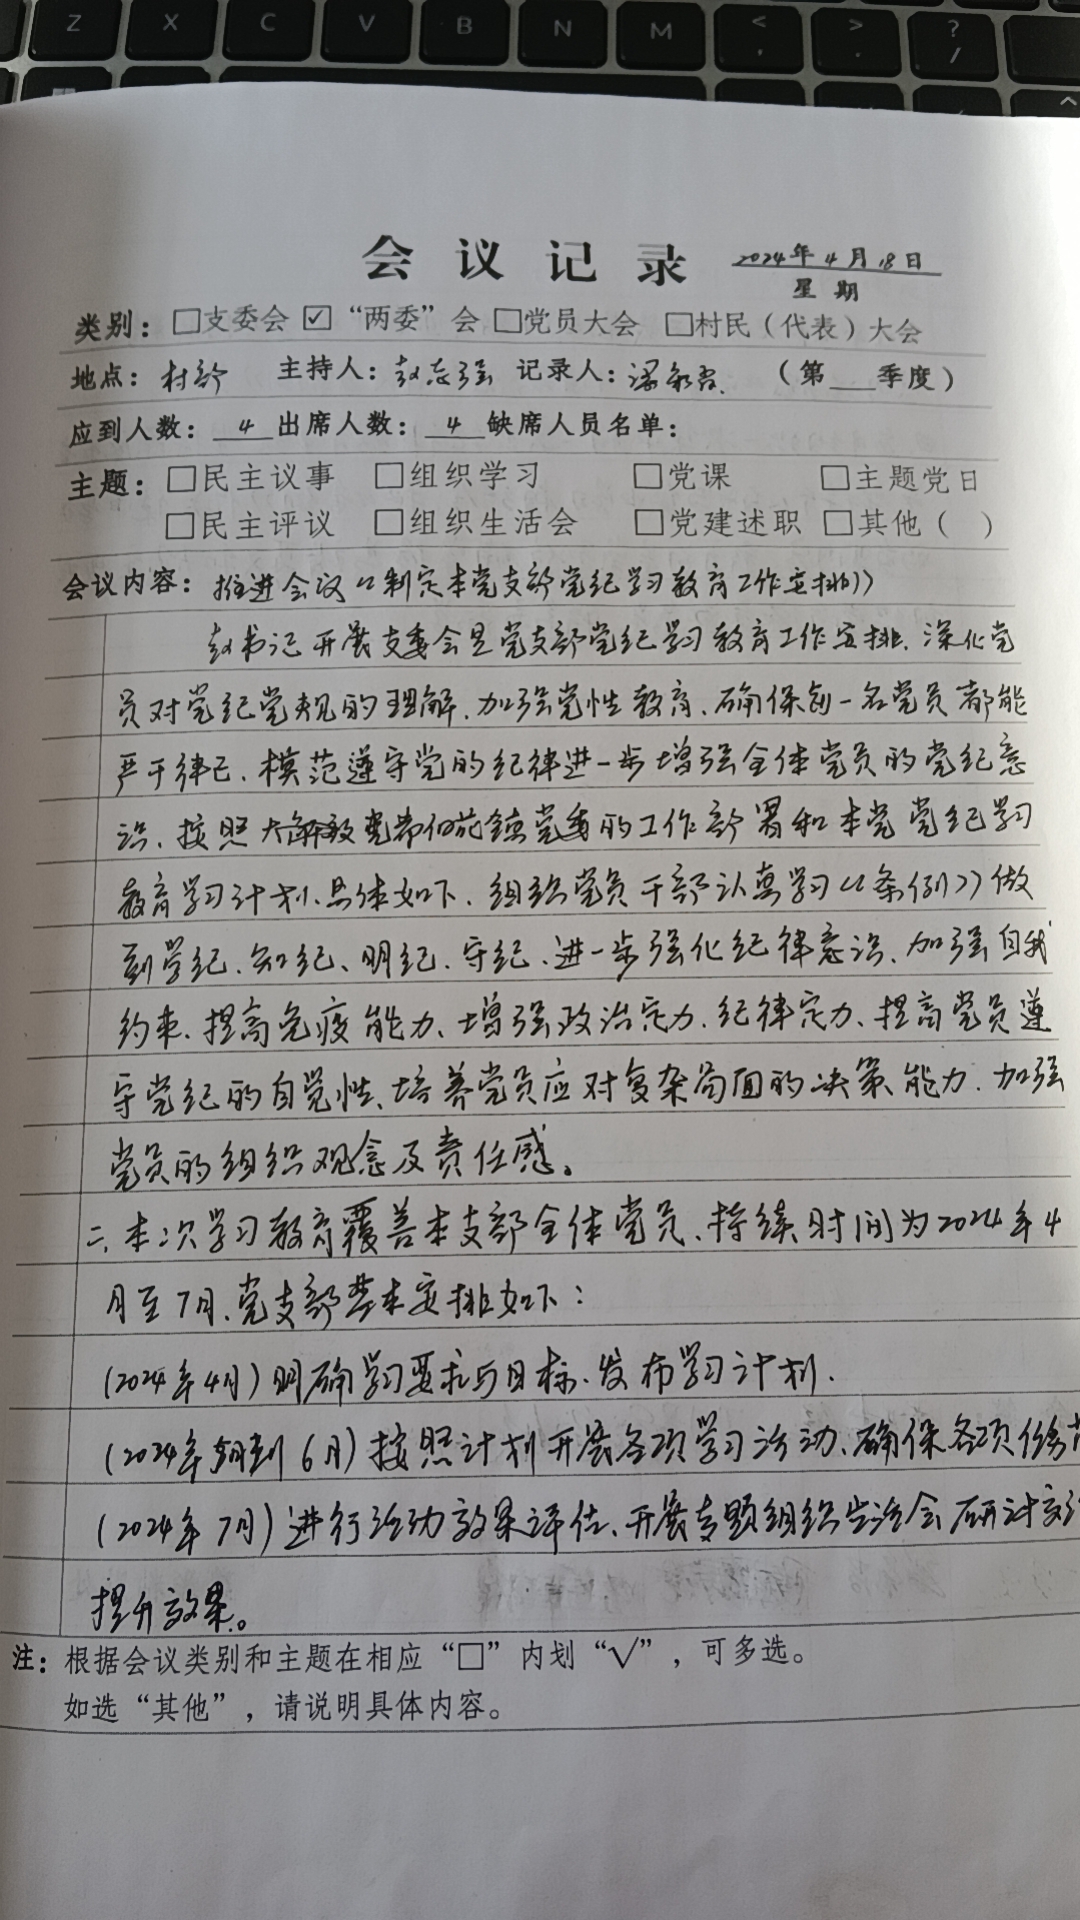 Z X C V B N M < , > . ? /
会议记录 2024年4月18日
星期
类别：□支委会 ☑“两委”会 □党员大会 □村民（代表）大会
地点：村部 主持人：赵志强 记录人： （第 季度）
应到人数：4 出席人数：4 缺席人员名单：
主题：□民主议事 □组织学习 □党课 □主题党日
□民主评议 □组织生活会 □党建述职 □其他（ ）
会议内容：推进会议《制定本党支部党纪学习教育工作安排》
赵书记开展支委会是党支部党纪学习教育工作安排、深化党
员对党纪党规的理解、加强党性教育、确保每一名党员都能
严于律己、模范遵守党的纪律进一步增强全体党员的党纪意
识、按照 镇党委的工作部署和本党党纪学习
教育学习计划、具体如下、组织党员干部认真学习《条例》做
到学纪、知纪、明纪、守纪、进一步强化纪律意识、加强自我
约束、提高免疫能力、增强政治定力、纪律定力、提高党员遵
守党纪的自觉性、培养党员应对复杂局面的决策能力、加强
党员的组织观念及责任感。
二、本次学习教育覆盖本支部全体党员、持续时间为2024年4
月至7月、党支部基本安排如下：
(2024年4月)明确学习要求与目标、发布学习计划.
(2024年 到6月)按照计划开展各项学习活动、确保各项任务
(2024年7月)进行活动效果评估、开展专题组织生活会研讨交
提升效果。
注：根据会议类别和主题在相应“□”内划“√”，可多选。
如选“其他”，请说明具体内容。